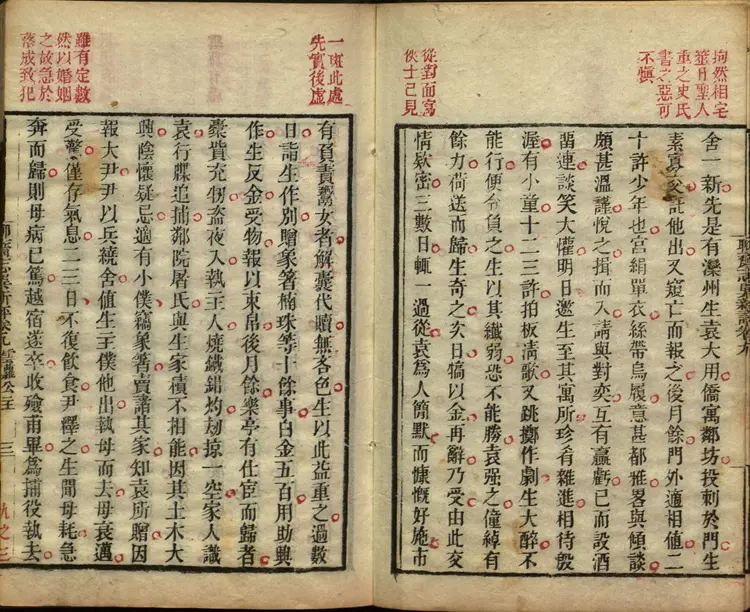 拘然相宅
筮日聖人
重之史氏
書之惡可
不慎
從對面寫
俠士已見
舍一新先是有灤州生袁大用僑寓鄰坊投刺於門生
素寡交託他出又窺亡而報之後月餘門外適相值二
十許少年也宮絹單衣絲帶烏履意甚都雅畧與傾談
頗甚溫謹悅之揖而入請與對奕互有贏虧已而設酒
畱連談笑大懽明日邀生至其寓所珍肴雜進相待殷
渥有小童十二三許拍板淸歌又跳擲作劇生大醉不
能行便令負之生以其纖弱恐不能勝袁强之僮綽有
餘力荷送而歸生奇之次日犒以金再辭乃受由此交
情欵密三數日輒一過從袁爲人簡默而慷慨好施市
一斑此處
先實後虛
雖有定數
然以婚姻
之故急於
落成致犯
有負責鬻女者解囊代贖無吝色生以此益重之過數
日詣生作別贈象箸楠珠等十餘事白金五百用助興
作生反金受物報以束帛後月餘樂亭有仕宦而歸者
橐貲充牣盜夜入執主人燒鐵鉗灼刼掠一空家人識
袁行牒追捕鄰院屠氏與生家積不相能因其土木大
興陰懷疑忌適有小僕竊象箸賣諸其家知袁所贈因
報大尹尹以兵繞舍値生主僕他出執母而去母衰邁
受驚僅存氣息二三日不復飮食尹釋之生聞母耗急
奔而歸則母病已篤越宿遂卒收殮甫畢爲捕役執去
聊齋志異新評卷九 雲蘿公主 三